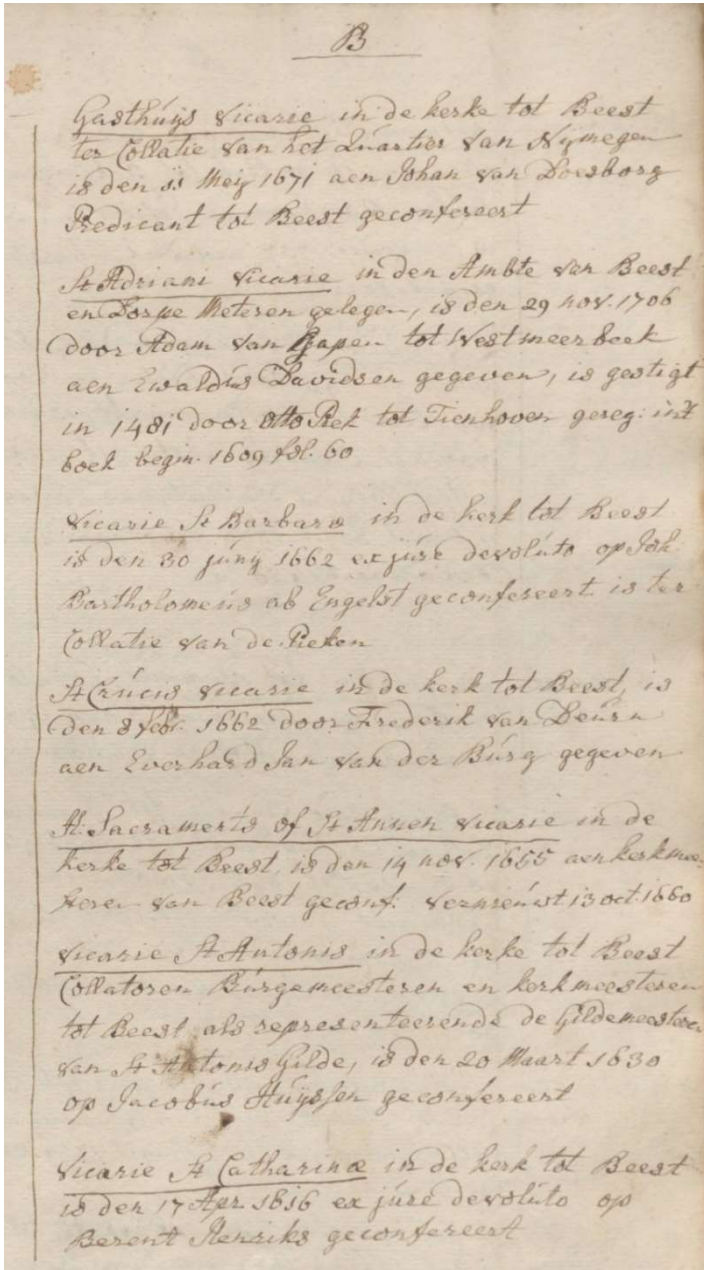 B
Gasthúijs Vicarie in de kerke tot Beest
ter Collatie van het Quartier van Nijmegen
is den 11 Meij 1671 aen Johan van Doesborg
Predicant tot Beest geconfereert
St Adriani Vicarie in den Ambte van Beest
en Dorpe Meteren gelegen, is den 29 nov. 1706
door Adam van tot Westmeerbeek
aen Ewaldús Davidsen gegeven, is gestigt
in 1481 door Otto Piek tot Tienhoven gereg: int
boek begin. 1609 fol. 60
Vicarie St Barbaræ in de kerk tot Beest
is den 30 júnij 1662 ex júre devolúto op Joh:
Bartholomeús ab Engelst geconfereert is ter
Collatie van de Pieken
St Crúcis Vicarie in de kerk tot Beest, is
den 8 febr. 1662 door Frederik van Deúrn
aen Everhard Jan van der Búrg gegeven
H: Sacraments of St Annen vicarie in de
kerke tot Beest, is den 14 nov. 1655 aen kerkmee-
steren van Beest geconf: vernieúwt 13 oct. 1660
Vicarie St Antonis in de kerke tot Beest
Collatoren Búrgemeesteren en kerkmeesteren
tot Beest als representeerende de Gildemeesteren
van St Antonis Gilde, is den 20 Maart 1630
op Jacobús Húijssen geconfereert
Vicarie St Catharinæ in de kerk tot Beest
is den 17 Apr. 1616 ex júre devolúto op
Berent Henriks geconfereert